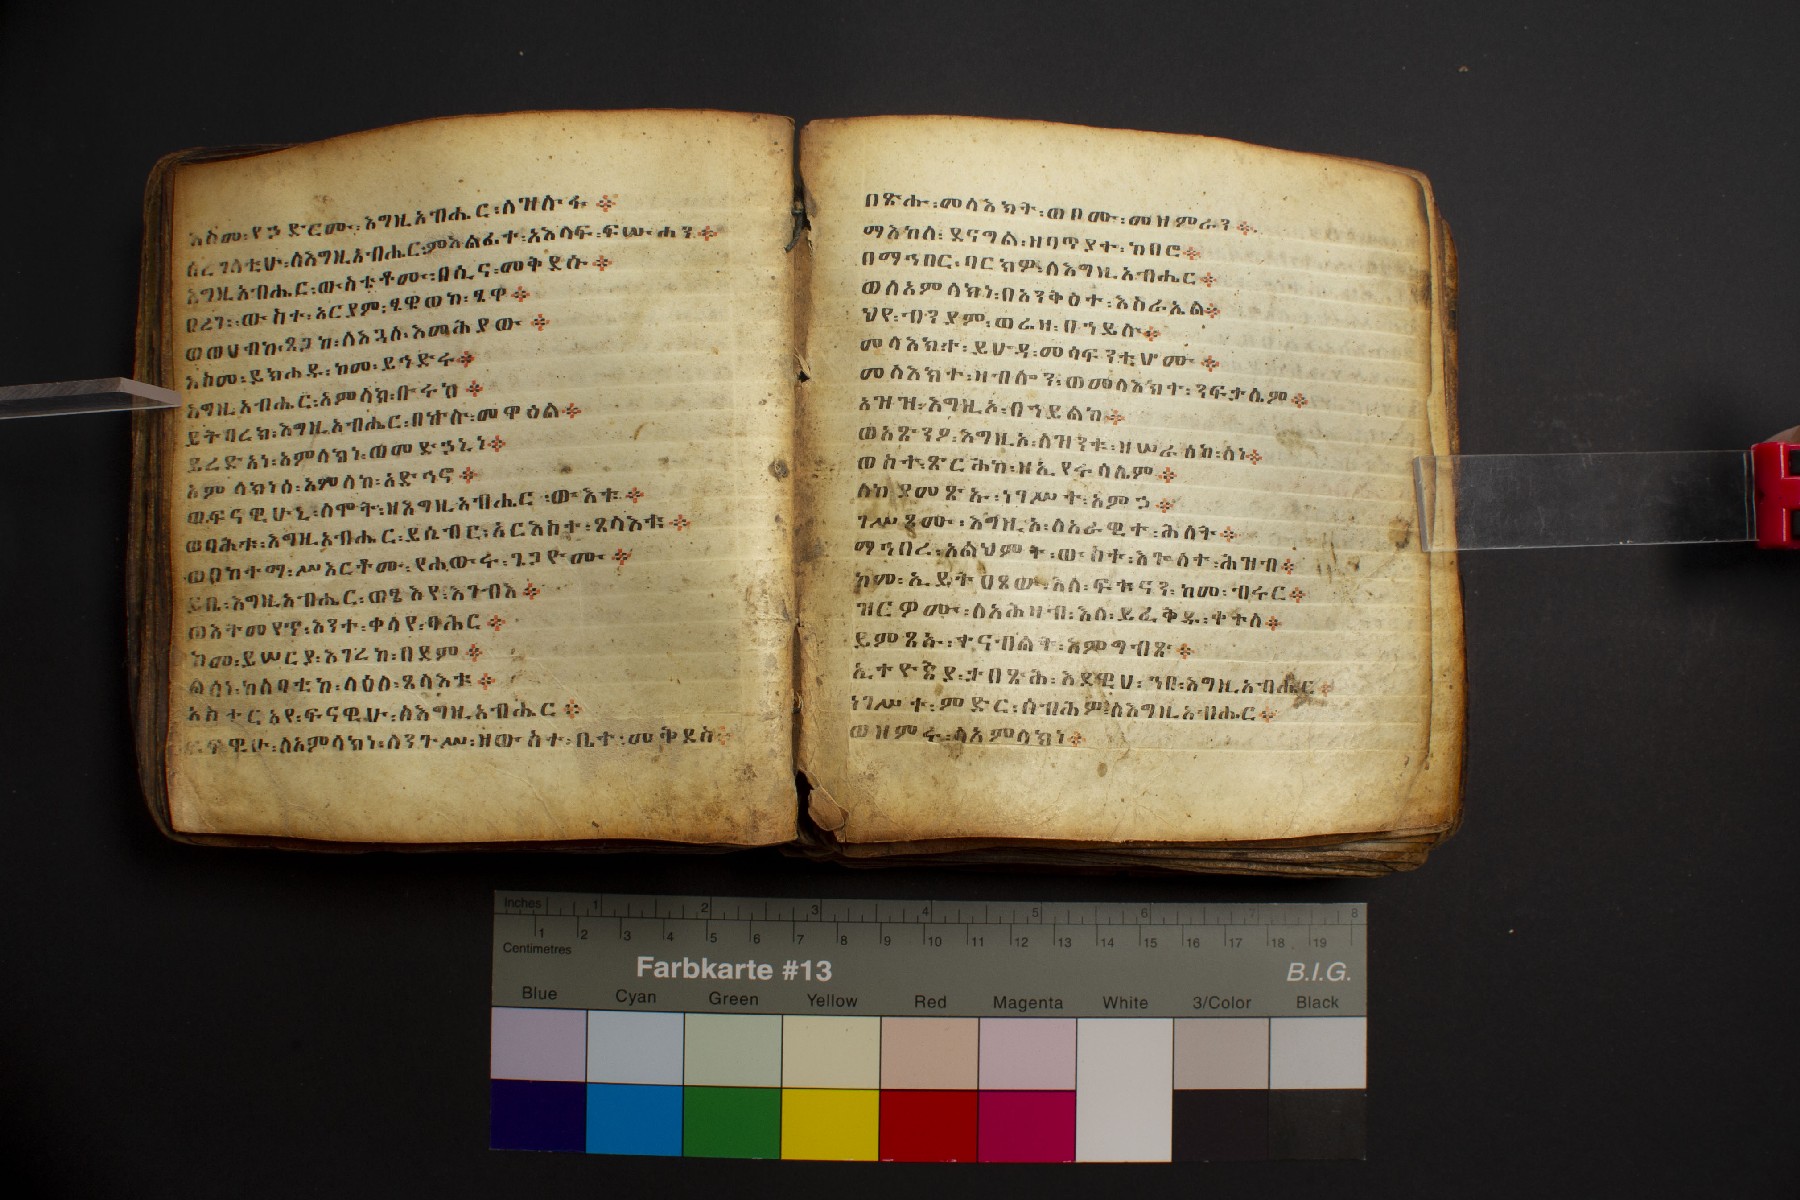 እስመ፡ የኃድሮሙ፡ እግዚአብሔር፡ ለዝሉፉ ፨
ሰረገላቲሁ፡ ለእግዚአብሔር፡ ምእልፊተ፡ አእላፍ፡ ፍሡሓን ፨
እግዚአብሔር፡ ውስቴቶሙ፡ በሲና፡ መቅደሱ ፨
ዐረገ፡ ውስተ፡ አርያም፡ ፄዊወከ፡ ፄዋ ፨
ወወሀብከ፡ ጸጋከ፡ ለእጓለ፡ እመሕያው ፨
እስመ፡ ይክሕዱ፡ ከመ፡ ይኅድሩ ፨
እግዚአብሔር፡ አምላክ፡ ቡሩክ ፨
ይትባረክ፡ እግዚአብሔር፡ በኵሉ፡ መዋዕል ፨
ይረድአነ፡ አምላክነ፡ ወመድኃኒነ ፨
አምላክነሰ፡ አምላከ፡ አድኅኖ ፨
ወፍናዊሁኒ፡ ለሞት፡ ዘእግዚአብሔር፡ ውእቱ ፨
ወባሕቱ፡ እግዚአብሔር፡ ይሰብር፡ አርእስተ፡ ጸላእቱ ፨
ወበከተማ፡ ሥእርቶሙ፡ የሐውሩ፡ ጌጋዮሙ ፨
ይቤ፡ እግዚአብሔር፡ ወፄእየ፡ እገብእ ፨
ወእትመየጥ፡ እንተ፡ ቀላየ፡ ባሕር ፨
ከመ፡ ይሠርያ፡ እገሪከ፡ በደም ፨
ልሳነ፡ ከለባቲከ፡ ላዕለ፡ ጸላእቱ ፨
አስተርአየ፡ ፍናዊሁ፡ ለእግዚአብሔር ፨
ፍናዊሁ፡ ለአምላክነ፡ ለንጉሥ፡ ዘውስተ፡ ቤተ፡ መቅደስ ፨
በጽሑ፡ መላእክት፡ ወቦሙ፡ መዘምራን ፨
ማእከለ፡ ደናግል፡ ዘባጥያተ፡ ከበሮ ፨
በማኅበር፡ ባርክዎ፡ ለእግዚአብሔር ፨
ወለአምላክነ፡ በአንቅዕተ፡ እስራኤል ፨
ህየ፡ ብንያም፡ ወራዛ፡ በኀይሉ ፨
መላእክተ፡ ይሁዳ፡ መሳፍንቲሆሙ ፨
መላእክተ፡ ዛብሎን፡ ወመላእክተ፡ ንፍታሌም ፨
አዝዝ፡ እግዚኦ፡ በኀይልከ ፨
ወአጽንዖ፡ እግዚኦ፡ ለዝንቱ፡ ዘሠራዕከ፡ ለነ ፨
ውስተ፡ ጽርሕከ፡ ዘኢየሩሳሌም ፨
ለከ፡ ያመጽኡ፡ ነገሥት፡ አምኃ ፨
ገሥጾሙ፡ እግዚኦ፡ ለአራዊተ፡ ሕለት ፨
ማኅበረ፡ አልህምት፡ ውስተ፡ እጐልተ፡ ሕዝብ ፨
ከመ፡ ኢይትዐጸው፡ እለ፡ ፍቱናን፡ ከመ፡ ብሩር ፨
ዝርዎሙ፡ ለአሕዛብ፡ እለ፡ ይፈቅዱ፡ ቀትለ ፨
ይምጽኡ፡ ተናብልት፡ እምግብጽ ፨
ኢትዮጵያ፡ ታበጽሕ፡ እደዊሃ፡ ኀበ፡ እግዚአብሔር ፨
ነገሥተ፡ ምድር፡ ሰብሕዎ፡ ለእግዚአብሔር ፨
ወዘምሩ፡ ለአምላክነ ፨
Inches 1 2 3 4 5 6 7 8
1 2 3 4 5 6 7 8 9 10 11 12 13 14 15 16 17 18 19
Centimetres
Farbkarte #13
B.I.G.
Blue Cyan Green Yellow Red Magenta White 3/Color Black